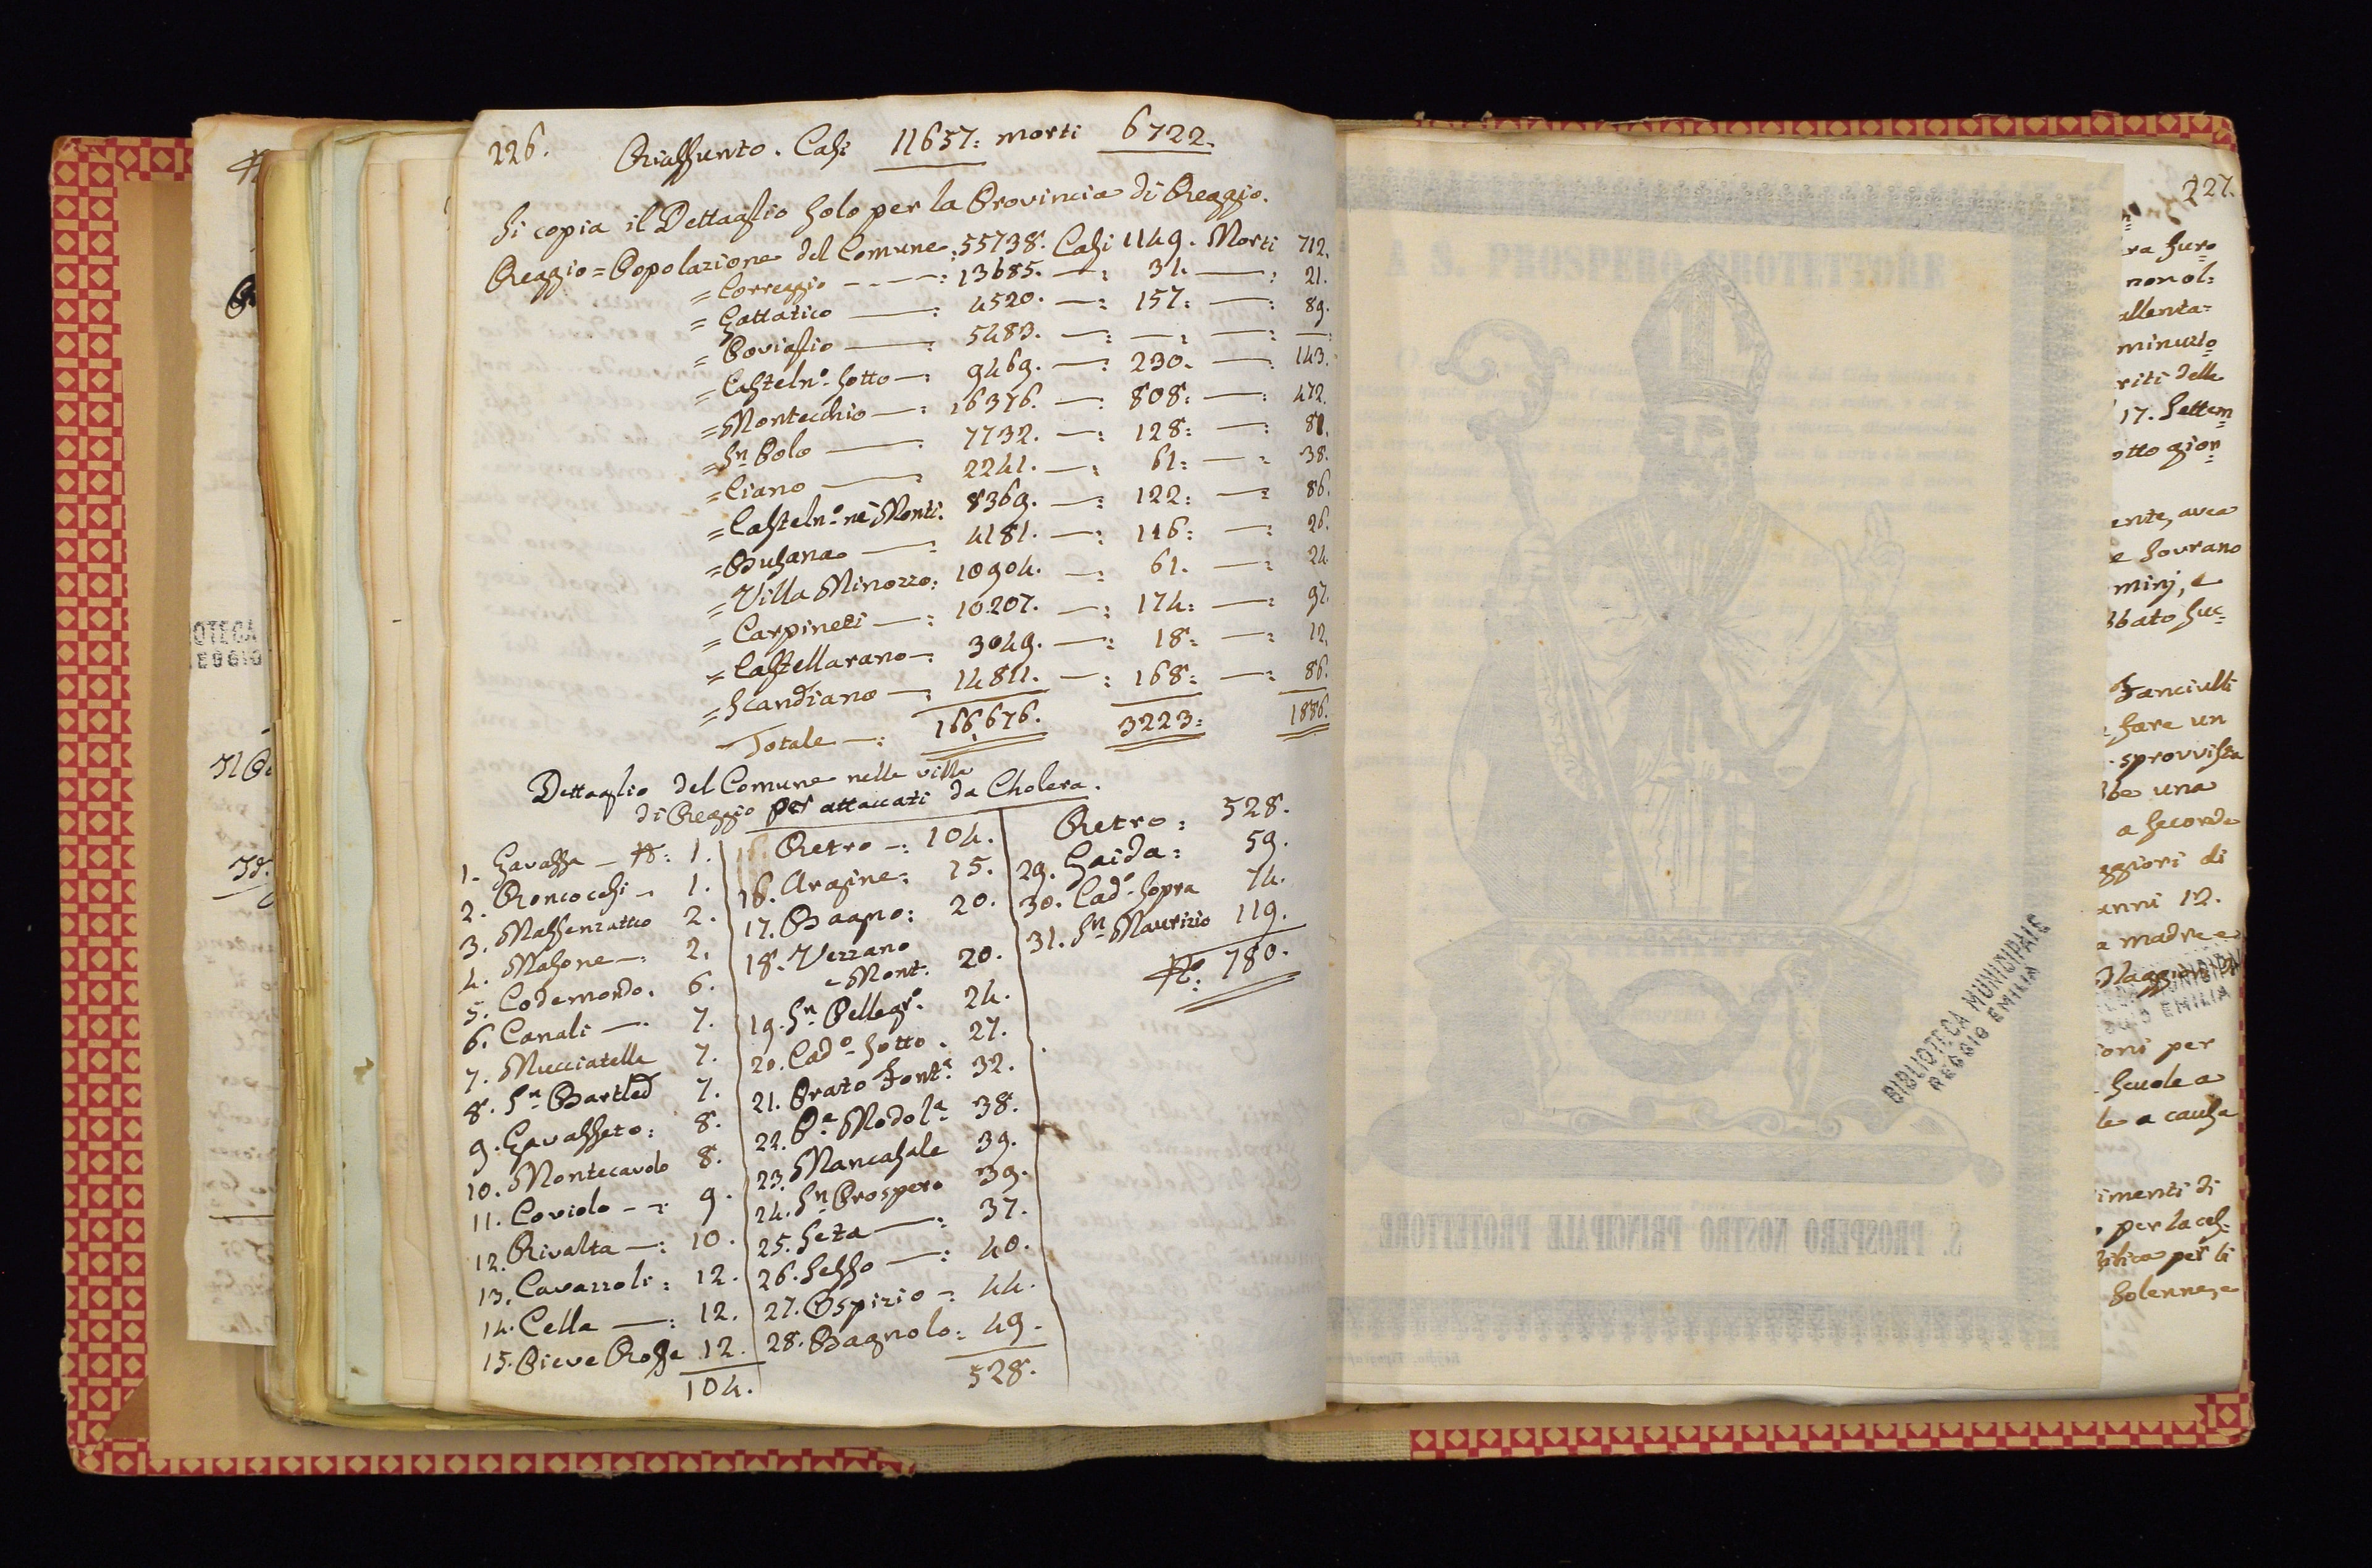 226. Riassunto. Casi 11657: morti 6722.
Si copia il Dettaglio solo per la Provincia di Reggio.
Reggio = Popolazione del Comune: 55738. Casi 1149. Morti 712.
= Correggio - - —: 13685. —: 31. —: 21.
= Gattatico —: 4520. —: 157: —: 89.
= Poviglio —: 5483. —: —: —: —:
= Casteln.º Sotto —: 9469. —: 230. —: 143.
= Montecchio —: 16376. —: 808: —: 472.
= Sn Polo —: 7732. —: 128: —: 81.
= Ciano —: 2241. —: 61: —: 38.
= Casteln.º ne' Monti. 8369. —: 122: —: 86.
= Busana —: 4181. —: 116: —: 26.
= Villa Minozzo: 10904. —: 61. —: 24.
= Carpineti —: 10207. —: 174: —: 97.
= Castellarano —: 3049. —: 18: —: 12.
= Scandiano —: 14811. —: 168: —: 86.
Totale —: 166,676. 3223: 1886.
Dettaglio del Comune nelle ville
di Reggio per attaccati da Cholera.
1. Gavassa — N: 1.
2. Roncocesi — 1.
3. Massenzatico 2.
4. Masone —: 2.
5. Codemondo. 6.
6. Canali —. 7.
7. Mucciatella 7.
8. Sn Bartled 7.
9. Gavasseto: 8.
10. Montecavolo 8.
11. Coviolo - -: 9.
12. Rivalta —: 10.
13. Cavazzoli: 12.
14. Cella —: 12.
15. Pieve Rossa 12.
104.
Retro —: 104.
16. Argine: 15.
17. Bagno: 20.
18. Vezzano
e Mont: 20.
19. Sn Pellegr.º 24.
20. Cad.º Sotto. 27.
21. Prato Font.ª 32.
22. P.e Modol.ª 38.
23. Mancasale 39.
24. Sn Prospero 39.
25. Seta —: 37.
26. Sesso —: 40.
27. Ospizio —: 44.
28. Bagnolo: 49.
528.
Retro: 528.
29. Gaida: 59.
30. Cad.º Sopra 74.
31. Sn Maurizio 119.
N.º 780.
A S. PROSPERO PROTETTORE
S. PROSPERO NOSTRO PRINCIPALE PROTETTORE
BIBLIOTECA MUNICIPALE
REGGIO EMILIA
227.
ra suro
non ol:
allenta=
minuzio
riti delle
17. Settem=
otto gior=
ente, avea
e Sovrano
minj, e
bbato suc=
Fanciulli
fare un
sprovvista
be una
a seconda
ggiori di
anni 12.
a madre e
Maggiori
ioni per
Scuole a
le a causa
imenti di
per la cel=
bilica per li
solenne, e
OTECA
EGGIO